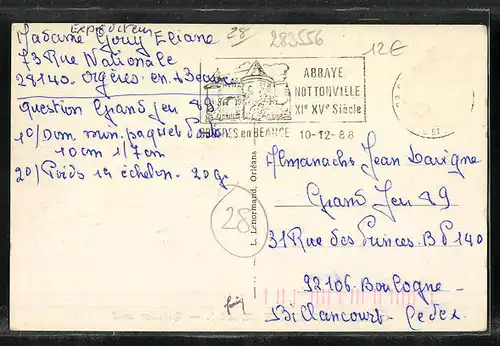 Expéditeur
Madame Gouy Eliane
73 Rue Nationale
28140. Orgères. en. Beauce
question Grand Jeu 89
1o/ Dim min. paquet Poste
10cm 1/7cm
2o/ Poids 1er échelon. 20g
28/
283556
12€
ABBAYE
NOTTONVILLE
XIe XVe Siècle
ORGERES en BEAUCE 10-12-88
L. Lenormand, Orléans
28
Almanachs Jean Lavigne
Grand Jeu 89
31 Rue des Princes BP 140
92106. Boulogne-
Billancourt- Cedex.